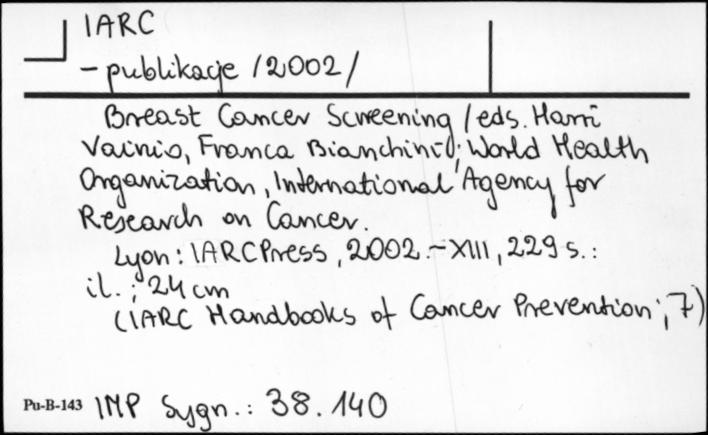 IARC
- publikacje /2002/
Breast Cancer Screening / eds. Harri
Vainio, Franca Bianchini; World Health
Organization, International Agency for
Research on Cancer.
Lyon : IARCPress, 2002. - XIII, 229 s. :
il. ; 24 cm
(IARC Handbooks of Cancer Prevention ; 7)
Pu-B-143 IMP Sygn.: 38.140